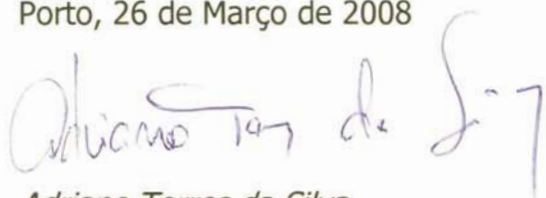 Porto, 26 de Março de 2008
Adriano Torres da Silva
Adriano Torres da Silva